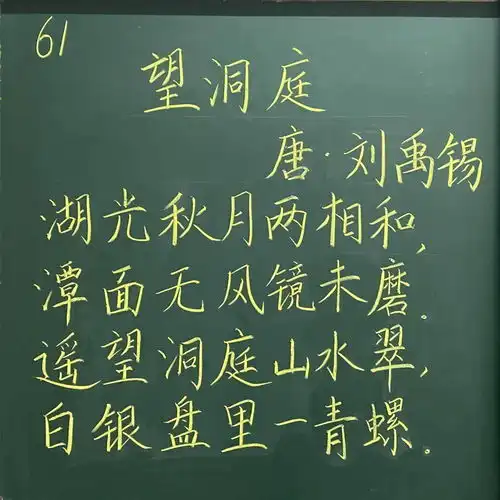 61
望洞庭
唐·刘禹锡
湖光秋月两相和,
潭面无风镜未磨.
遥望洞庭山水翠,
白银盘里一青螺.